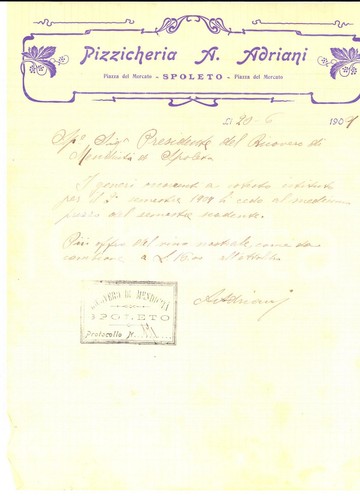 Pizzicheria A. Adriani
Piazza del Mercato - SPOLETO - Piazza del Mercato
li 20-6 1909
Spe Sigr Presidente del Ricovero di
Mendicità di Spoleto
I generi occorrenti a codesto istituto
per il 2° semestre 1909 li cedo al medesimo
prezzo del semestre cadente.
Più offro del vino nostrale come da
campione a L.
A Adriani
RICOVERO DI MENDICITÀ
SPOLETO
Protocollo N.